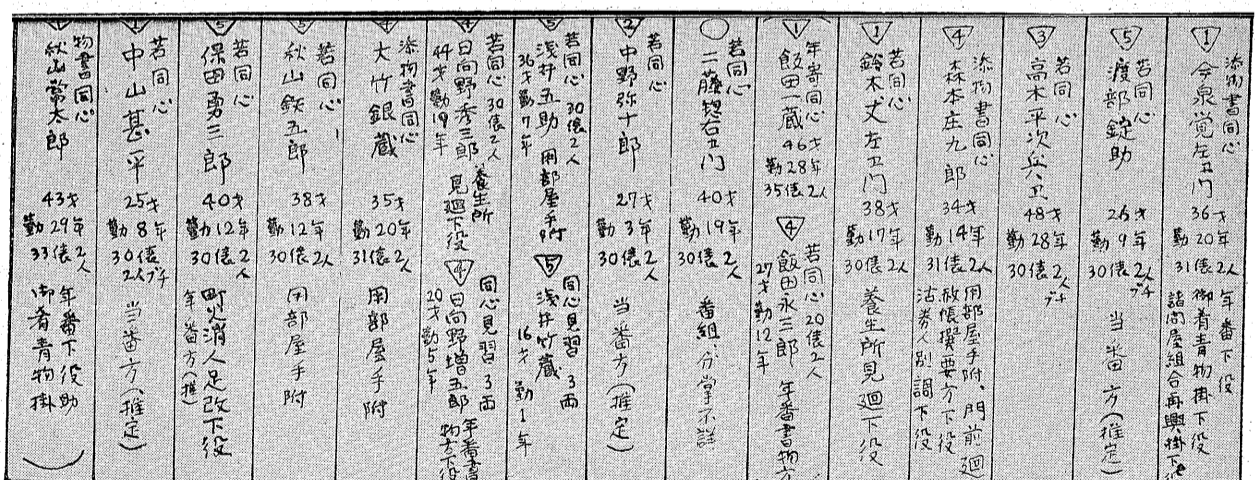 添物書同心
① 今泉覚左卫门
36才
勤20年
31俵2人
年番下役
御肴青物掛下役
諸問屋組合再興掛下役
若同心
⑤ 渡部錠助
26才
勤9年
30俵2人ブチ
当番方(推定)
若同心
③ 高木平次兵卫
48才
勤28年
30俵2人ブチ
添物書同心
④ 森本庄九郎
34才
勤14年
31俵2人
用部屋手附、門前廻
撰要方下役
沽券人別調下役
若同心
① 鈴木丈左卫门
38才
勤17年
30俵2人
養生所見廻下役
年寄同心
① 飯田一蔵
46才
勤28年
35俵2人
若同心20俵2人
④ 飯田永三郎 年番書物方
27才勤12年
若同心
○ 二藤惣右卫门
40才
勤19年
30俵2人
番組、分掌不詳
若同心
② 中野弥十郎
27才
勤3年
30俵2人
当番方(推定)
若同心 30俵2人
⑤ 浅井五助 用部屋手附
36才勤7年
同心見習 3両
⑤ 浅井竹蔵
16才 勤1年
若同心30俵2人 養生所
④ 日向野秀三郎 見廻下役
44才勤19年
同心見習 3両
④ 日向野増五郎 年番書物方下役
20才勤5年
添物書同心
④ 大竹銀蔵
35才
勤20年
31俵2人
用部屋手附
若同心
⑤ 秋山鉄五郎
38才
勤12年
30俵2人
用部屋手附
若同心
⑤ 保田勇三郎
40才
勤12年
30俵2人
町火消人足改下役
年番方(推)
若同心
① 中山甚平
25才
勤8年
30俵2人ブチ
当番方(推定)
物書同心
① 秋山常太郎
43才
勤29年
33俵2人
年番下役助
御肴青物掛